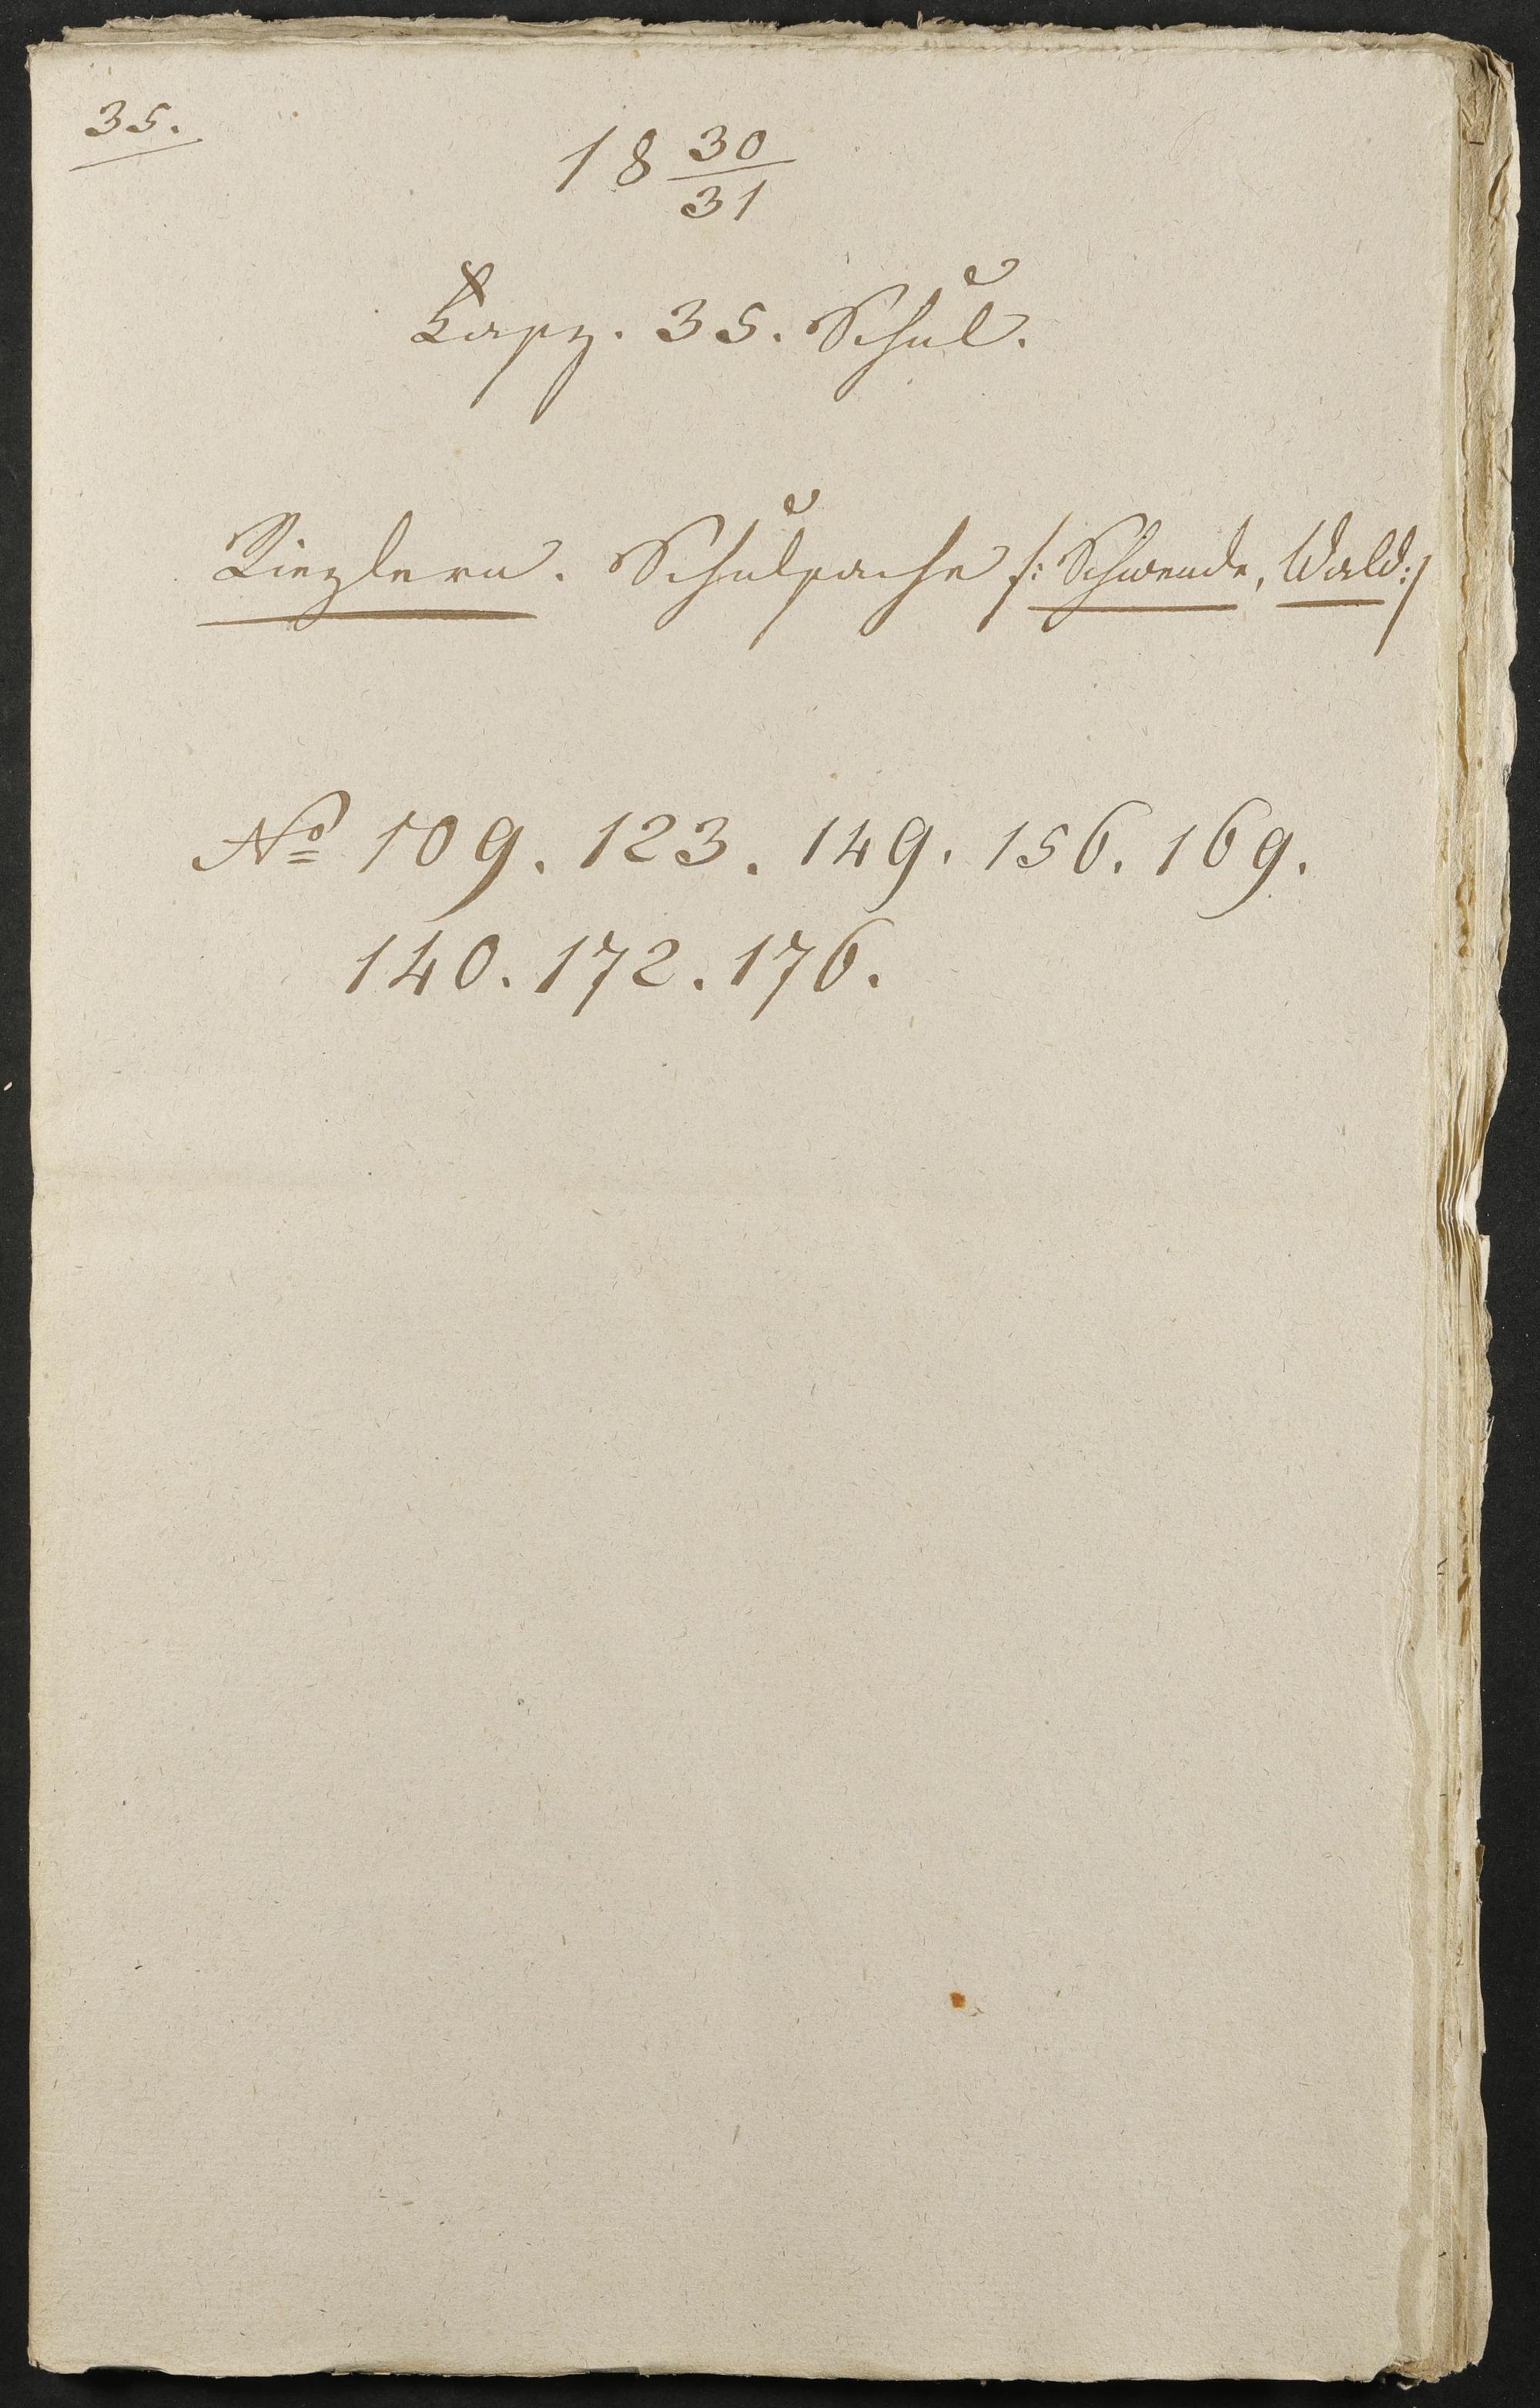 35.
18 30/31
Fasz. 35. Schul.
Riezlern. Schulsache /: Schwende, Wald :/
No 109. 123. 149. 156. 169.
140. 172. 176.